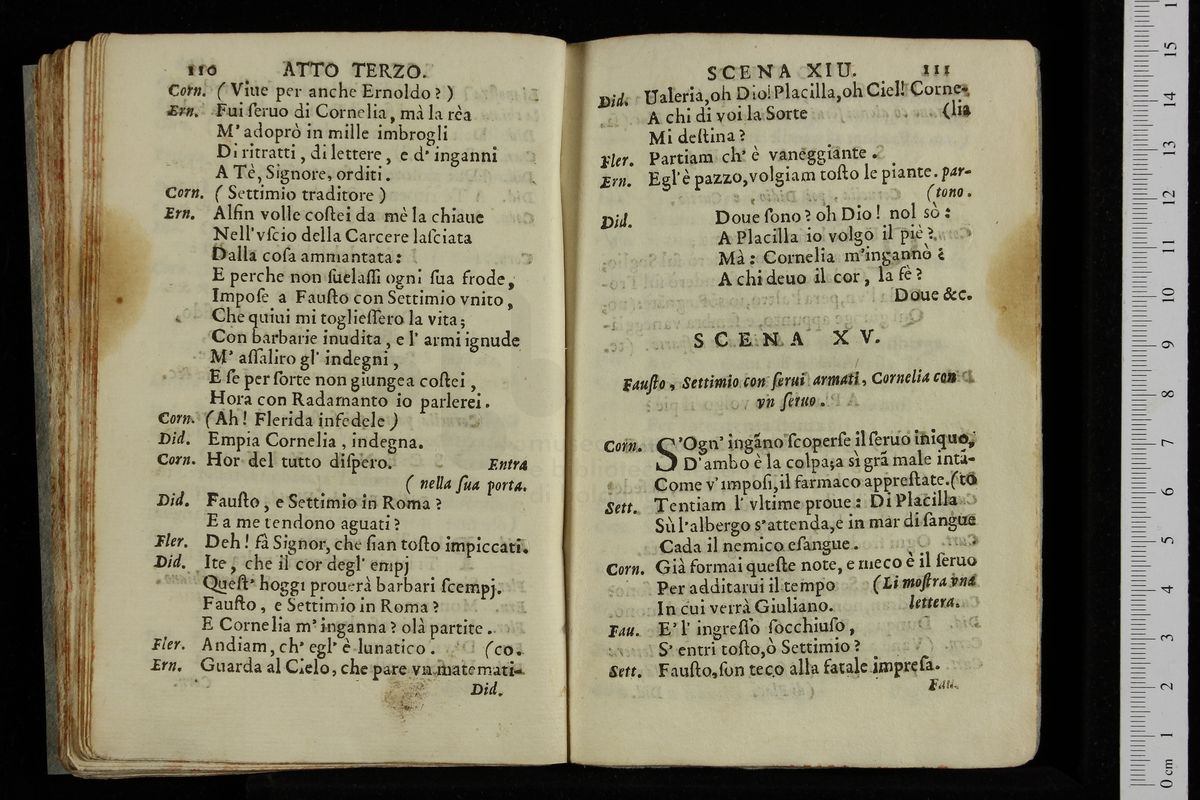 110 ATTO TERZO.
Corn. (Viue per anche Ernoldo?)
Ern. Fui ſeruo di Cornelia, mà la rèa
M' adoprò in mille imbrogli
Di ritratti, di lettere, e d' inganni
A Tè, Signore, orditi.
Corn. (Settimio traditore)
Ern. Alfin volle coſtei da mè la chiaue
Nell' vſcio della Carcere laſciata
Dalla coſa ammantata:
E perche non ſuelaſſi ogni ſua frode,
Impoſe a Fauſto con Settimio vnito,
Che quiui mi toglieſſero la vita;
Con barbarie inudita, e l' armi ignude
M' aſſaliro gl' indegni,
E ſe per ſorte non giungea coſtei,
Hora con Radamanto io parlerei.
Corn. (Ah! Flerida infedele)
Did. Empia Cornelia, indegna.
Corn. Hor del tutto diſpero. Entra
(nella ſua porta.
Did. Fauſto, e Settimio in Roma?
E a me tendono aguati?
Fler. Deh! fà Signor, che ſian toſto impiccati.
Did. Ite, che il cor degl' empj
Queſt' hoggi prouerà barbari ſcempj.
Fauſto, e Settimio in Roma?
E Cornelia m' inganna? olà partite.
Fler. Andiam, ch' egl' è lunatico. (co.
Ern. Guarda al Cielo, che pare vn matemati-
Did.
SCENA XIU. 111
Did. Ualeria, oh Dio! Placilla, oh Ciel! Corne-
A chi di voi la Sorte (lia
Mi deſtina?
Fler. Partiam ch' è vaneggiante.
Ern. Egl'è pazzo, volgiam toſto le piante. par-
(tono.
Did. Doue ſono? oh Dio! nol sò:
A Placilla io volgo il piè?
Mà: Cornelia m'ingannò?
A chi deuo il cor, la fè?
Doue &c.
SCENA XV.
Fauſto, Settimio con ſerui armati, Cornelia con
vn ſeruo.
Corn. S'Ogn' ingãno ſcoperſe il ſeruo iniquo,
D'ambo è la colpa; a sì grã male intã-
Come v' impoſi, il farmaco appreſtate. (to
Sett. Tentiam l' vltime proue: Di Placilla
Sù l'albergo s'attenda, e in mar di ſangue
Cada il nemico eſangue.
Corn. Già formai queſte note, e meco è il ſeruo
Per additarui il tempo (Li moſtra vna
In cui verrà Giuliano. lettera.
Fau. E' l' ingreſſo ſocchiuſo,
S' entri toſto, ò Settimio?
Sett. Fauſto, ſon teco alla fatale impreſa.
Fau.
0 cm 1 2 3 4 5 6 7 8 9 10 11 12 13 14 15